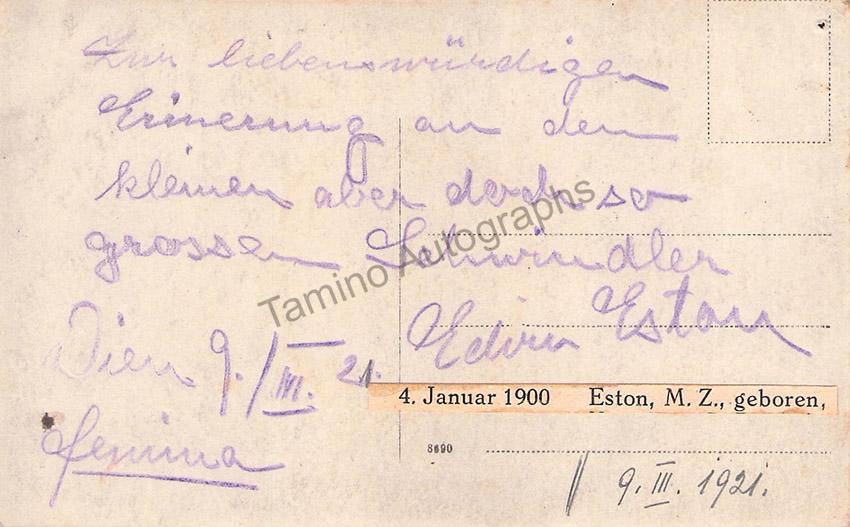 Zur liebenswürdigen
Erinerung an den
kleinen aber doch so
grossen Schwindler
Edvin Eston
Wien 9./III. 21.
Femina
4. Januar 1900 Eston, M. Z., geboren,
8690
9. III. 1921.
Tamino Autographs